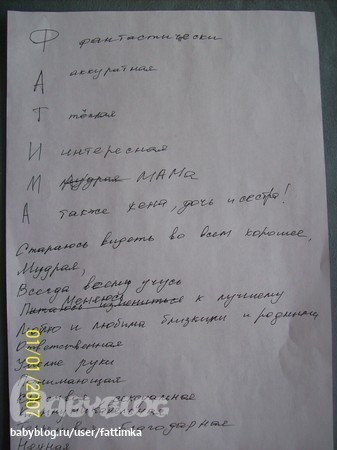 Ф фантастически
А аккуратная
Т тёплая
И интересная
М мудрая МАМа
А также жена, дочь и сестра!
Стараюсь видеть во всем хорошее,
Мудрая,
Всегда всему учусь
Меняюсь
Пытаюсь измениться к лучшему
Люблю и любима близкими и родными
Ответственная
руки
благодарная
01/01/2007
BABYBLOG
babyblog.ru/user/fattimka